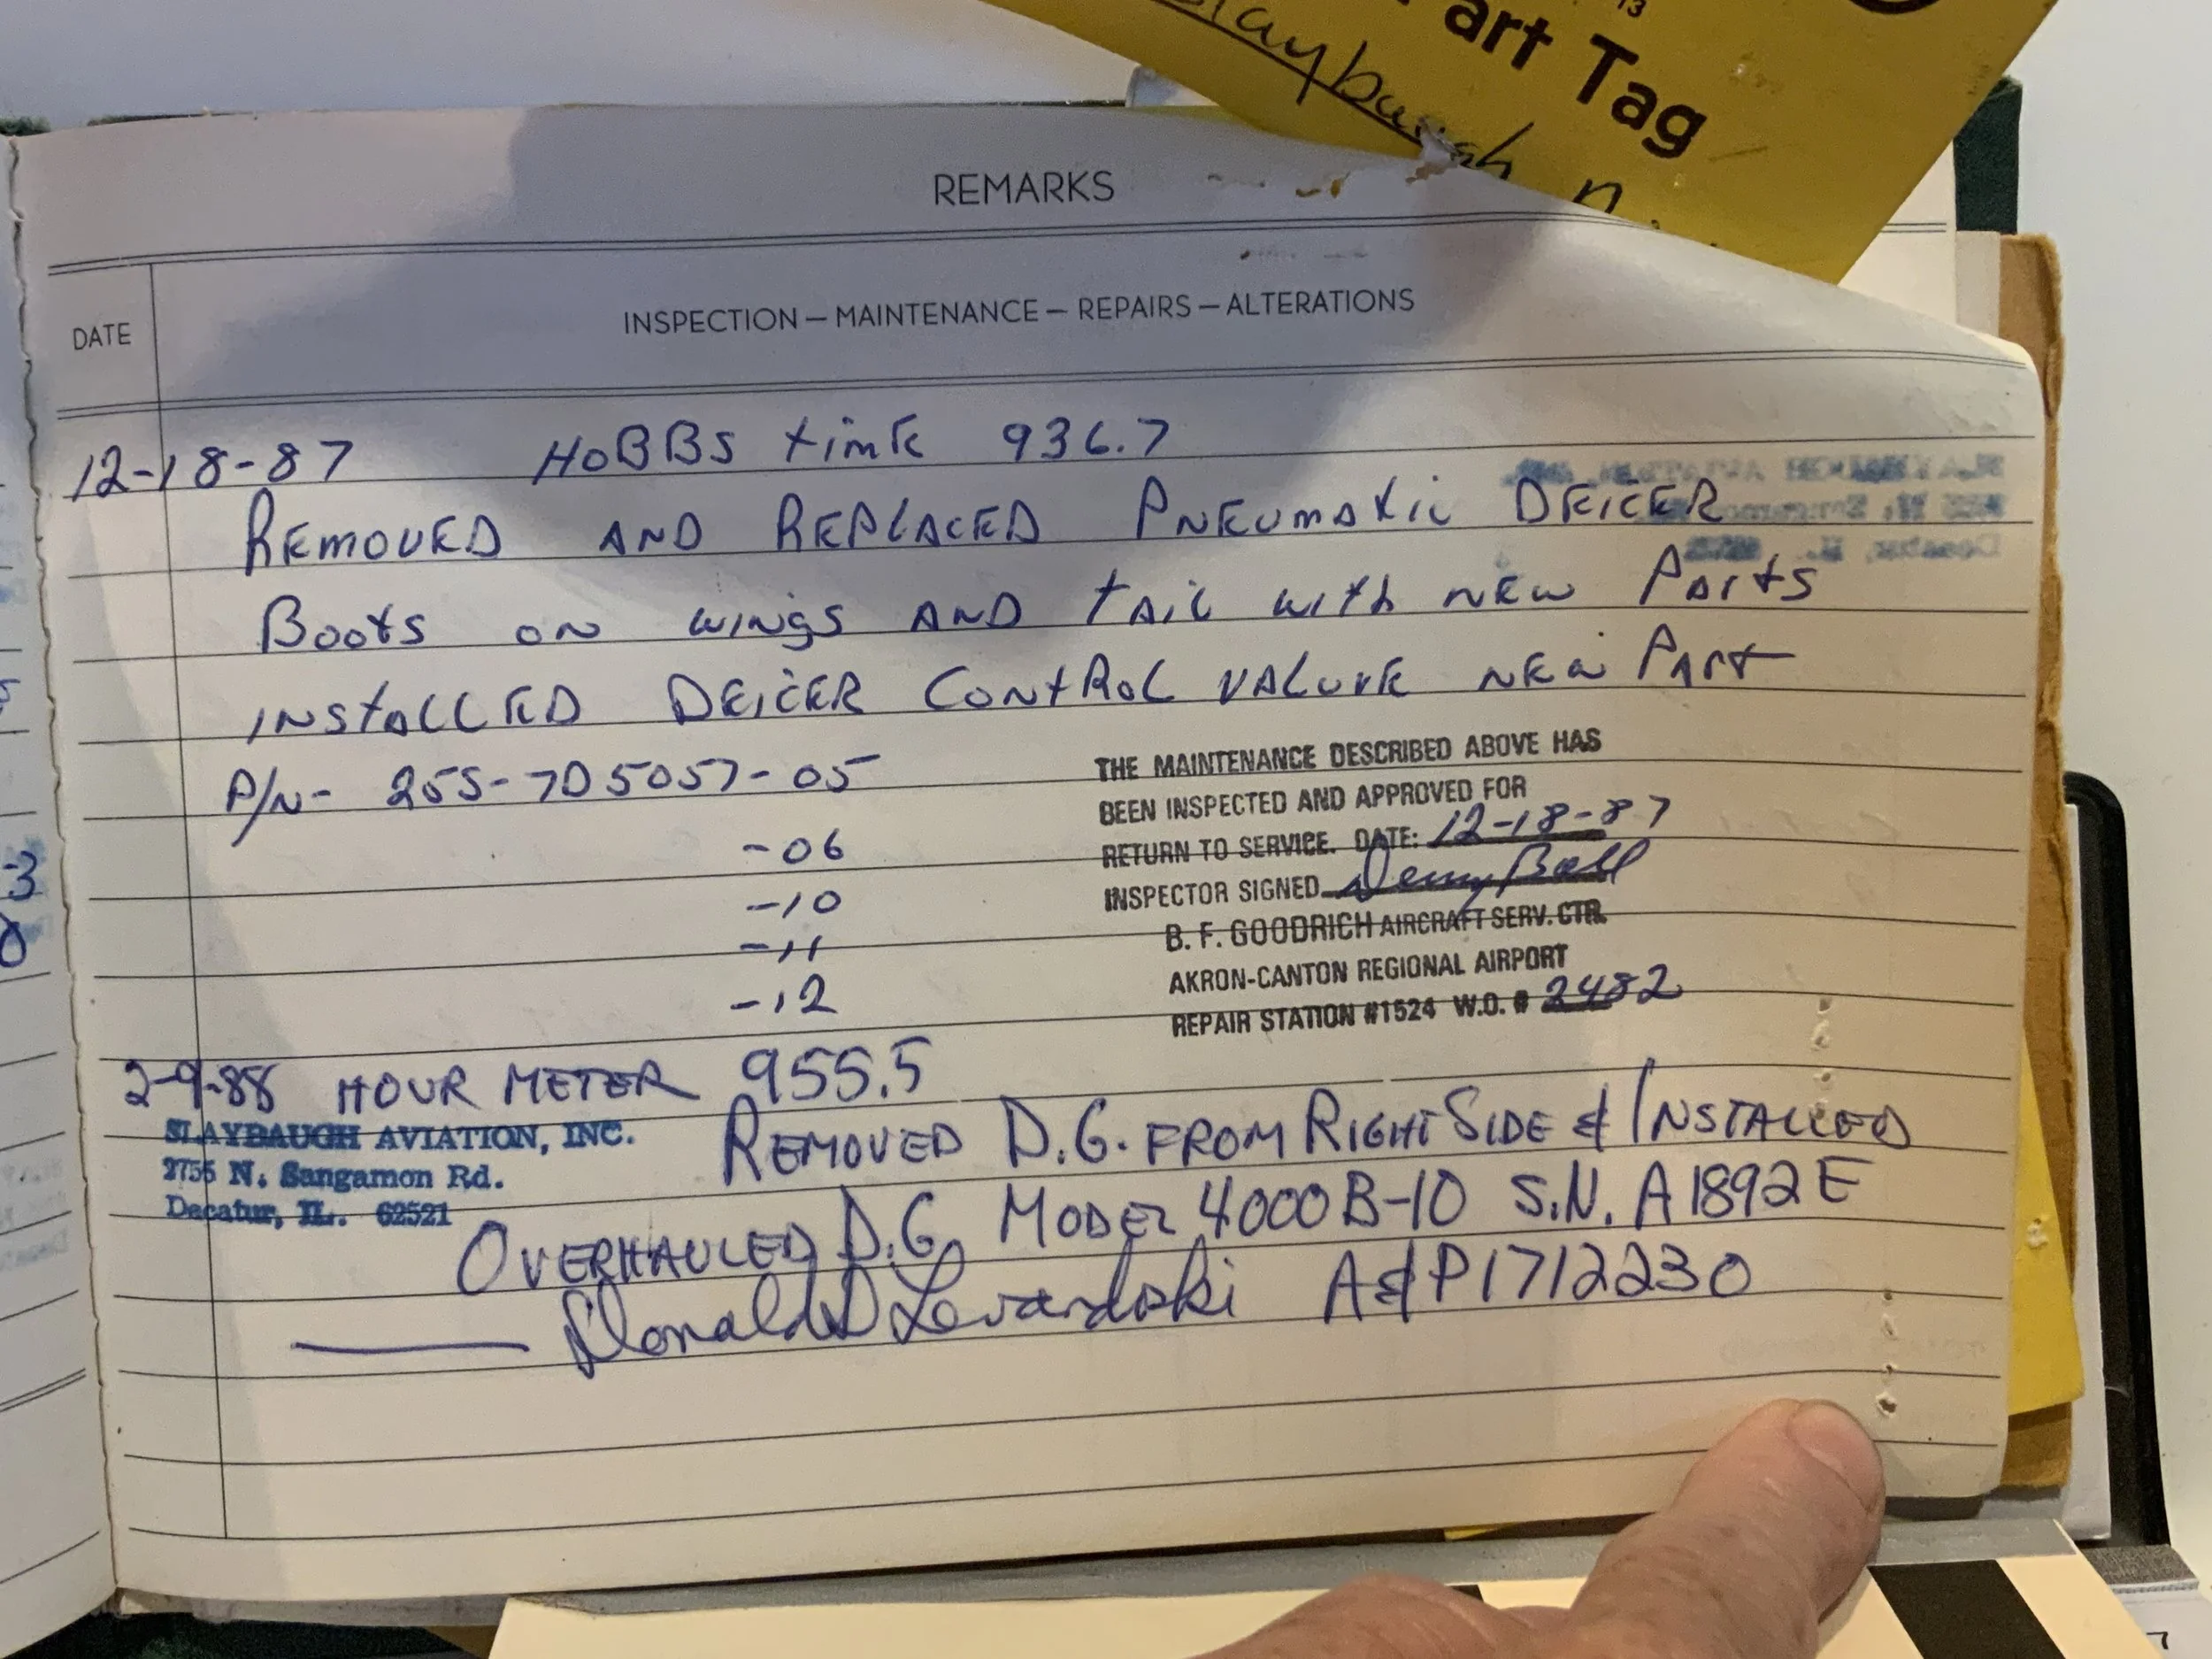 art Tag
Slaybaugh
REMARKS
DATE
INSPECTION — MAINTENANCE — REPAIRS — ALTERATIONS
12-18-87 HOBBS timE 936.7
REMOVED AND REPLACED PNEUMATIC DEICER
Boots on wings AND tAiL with NEW Parts
iNStALLED DEiCER CONtRoL VALUVE NEW PART
P/N- 25S-7D5057-05
-06
-10
-11
-12
THE MAINTENANCE DESCRIBED ABOVE HAS
BEEN INSPECTED AND APPROVED FOR
RETURN TO SERVICE. DATE: 12-18-87
INSPECTOR SIGNED Denny Ball
B. F. GOODRICH AIRCRAFT SERV. CTR.
AKRON-CANTON REGIONAL AIRPORT
REPAIR STATION #1524 W.O. # 2482
2-9-88 HOUR METER 955.5
SLAYBAUGH AVIATION, INC.
2755 N. Sangamon Rd.
Decatur, IL. 62521
REMOVED D.G. FROM RIGHT SIDE & INSTALLED
OVERHAULED D.G. MODEL 4000B-10 S.N. A1892E
Donald D Levandoski A&P1712230